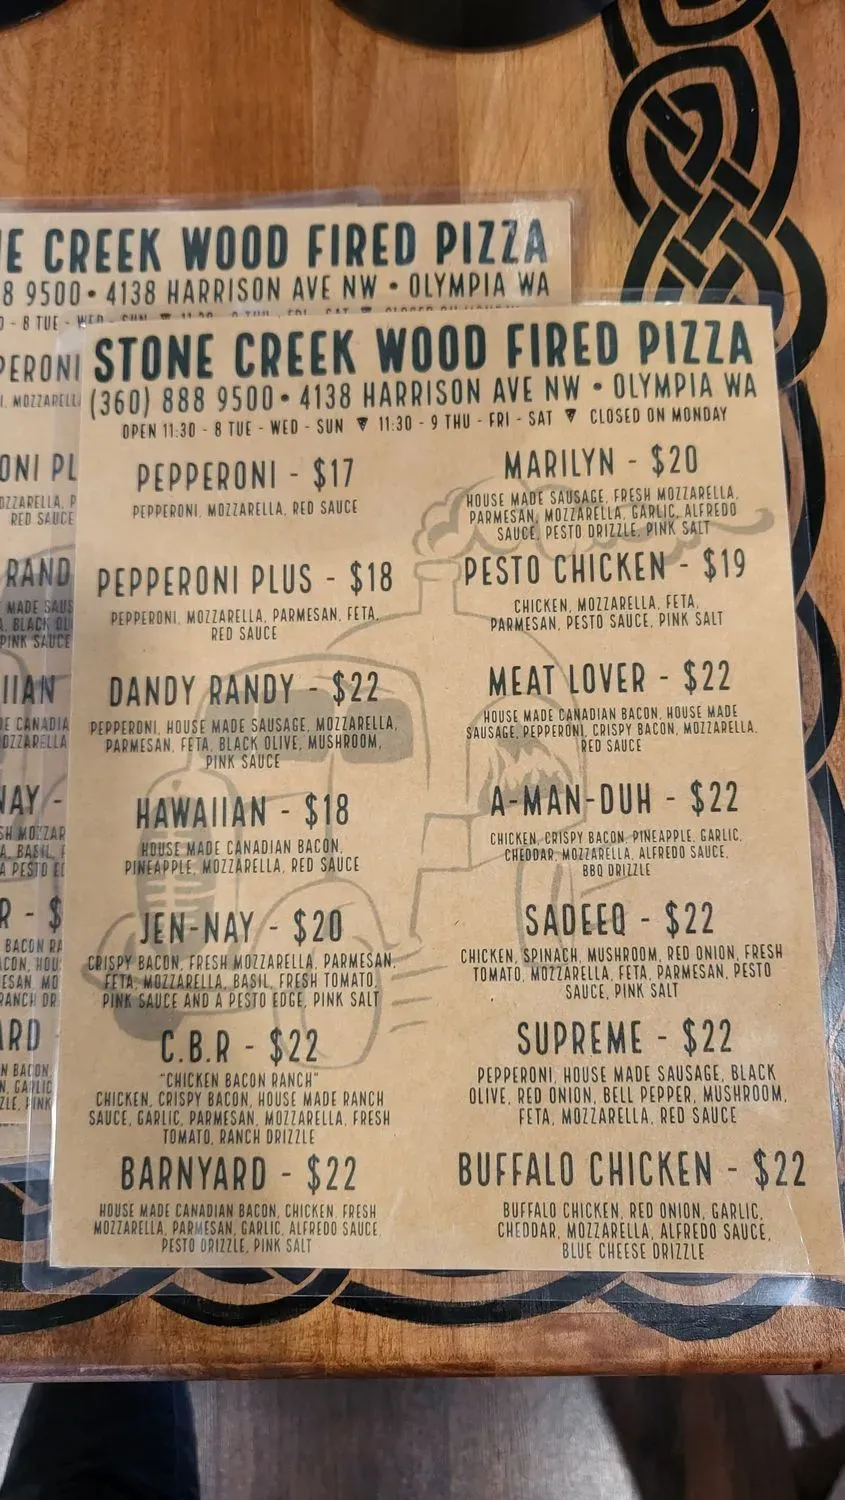 E CREEK WOOD FIRED PIZZA
8 9500 • 4138 HARRISON AVE NW • OLYMPIA WA
STONE CREEK WOOD FIRED PIZZA
(360) 888 9500 • 4138 HARRISON AVE NW • OLYMPIA WA
OPEN 11:30 - 8 TUE - WED - SUN 11:30 - 9 THU - FRI - SAT CLOSED ON MONDAY
PEPPERONI - $17
PEPPERONI, MOZZARELLA, RED SAUCE
PEPPERONI PLUS - $18
PEPPERONI, MOZZARELLA, PARMESAN, FETA,
RED SAUCE
DANDY RANDY - $22
PEPPERONI, HOUSE MADE SAUSAGE, MOZZARELLA,
PARMESAN, FETA, BLACK OLIVE, MUSHROOM,
PINK SAUCE
HAWAIIAN - $18
HOUSE MADE CANADIAN BACON,
PINEAPPLE, MOZZARELLA, RED SAUCE
JEN-NAY - $20
CRISPY BACON, FRESH MOZZARELLA, PARMESAN,
FETA, MOZZARELLA, BASIL, FRESH TOMATO,
PINK SAUCE AND A PESTO EDGE, PINK SALT
C.B.R - $22
"CHICKEN BACON RANCH"
CHICKEN, CRISPY BACON, HOUSE MADE RANCH
SAUCE, GARLIC, PARMESAN, MOZZARELLA, FRESH
TOMATO, RANCH DRIZZLE
BARNYARD - $22
HOUSE MADE CANADIAN BACON, CHICKEN, FRESH
MOZZARELLA, PARMESAN, GARLIC, ALFREDO SAUCE,
PESTO DRIZZLE, PINK SALT
MARILYN - $20
HOUSE MADE SAUSAGE, FRESH MOZZARELLA,
PARMESAN, MOZZARELLA, GARLIC, ALFREDO
SAUCE, PESTO DRIZZLE, PINK SALT
PESTO CHICKEN - $19
CHICKEN, MOZZARELLA, FETA,
PARMESAN, PESTO SAUCE, PINK SALT
MEAT LOVER - $22
HOUSE MADE CANADIAN BACON, HOUSE MADE
SAUSAGE, PEPPERONI, CRISPY BACON, MOZZARELLA,
RED SAUCE
A-MAN-DUH - $22
CHICKEN, CRISPY BACON, PINEAPPLE, GARLIC,
CHEDDAR, MOZZARELLA, ALFREDO SAUCE,
BBQ DRIZZLE
SADEEQ - $22
CHICKEN, SPINACH, MUSHROOM, RED ONION, FRESH
TOMATO, MOZZARELLA, FETA, PARMESAN, PESTO
SAUCE, PINK SALT
SUPREME - $22
PEPPERONI, HOUSE MADE SAUSAGE, BLACK
OLIVE, RED ONION, BELL PEPPER, MUSHROOM,
FETA, MOZZARELLA, RED SAUCE
BUFFALO CHICKEN - $22
BUFFALO CHICKEN, RED ONION, GARLIC,
CHEDDAR, MOZZARELLA, ALFREDO SAUCE,
BLUE CHEESE DRIZZLE